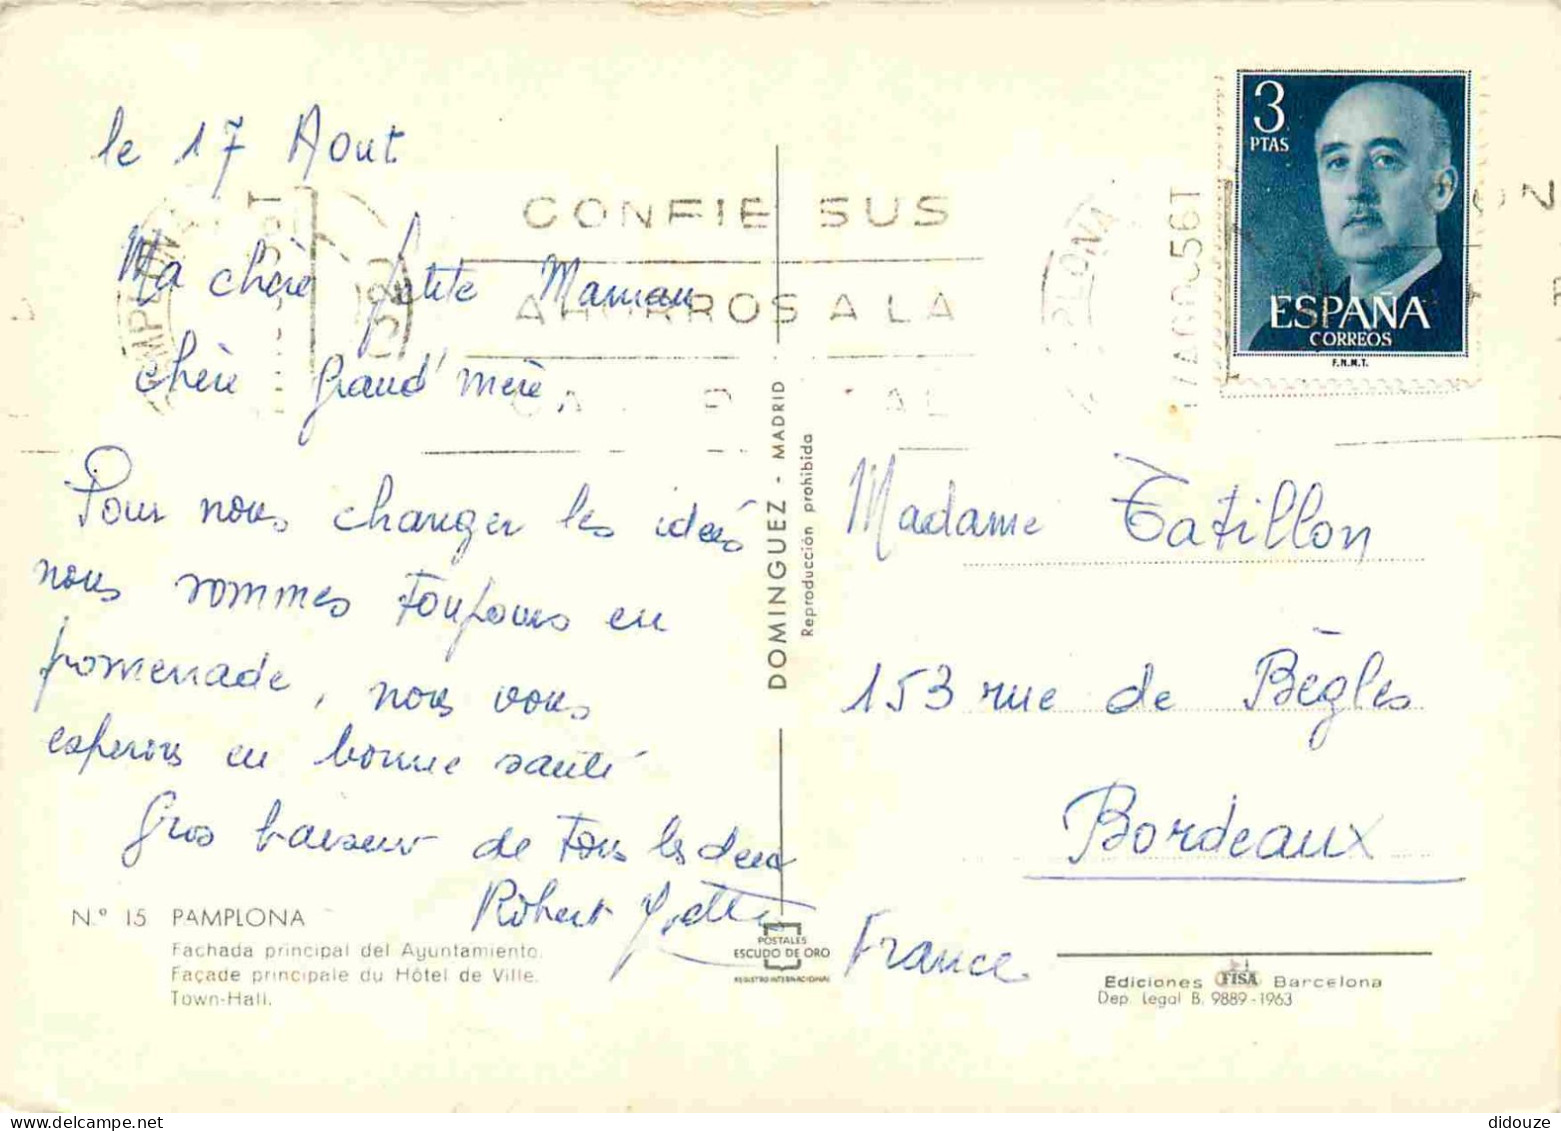 le 17 Aout
Ma chère petite Maman
chère grand'mère,
Pour nous changer les idées
nous sommes toujours en
promenade, nous vous
esperons en bonne santé
Gros baiseur de tous les deux
Robert
N.º 15 PAMPLONA
Fachada principal del Ayuntamiento.
Façade principale du Hôtel de Ville.
Town-Hall.
CONFIE SUS
AHORROS A LA
PAMPLONA
DOMINGUEZ - MADRID
Reproducción prohibida
POSTALES
ESCUDO DE ORO
REGISTRO INTERNACIONAL
3
PTAS
ESPAÑA
CORREOS
F.N.M.T.
Madame Tatillon
153 rue de Bègles
Bordeaux
France
Ediciones FISA Barcelona
Dep. Legal B. 9889-1963
delcampe.net
didouze